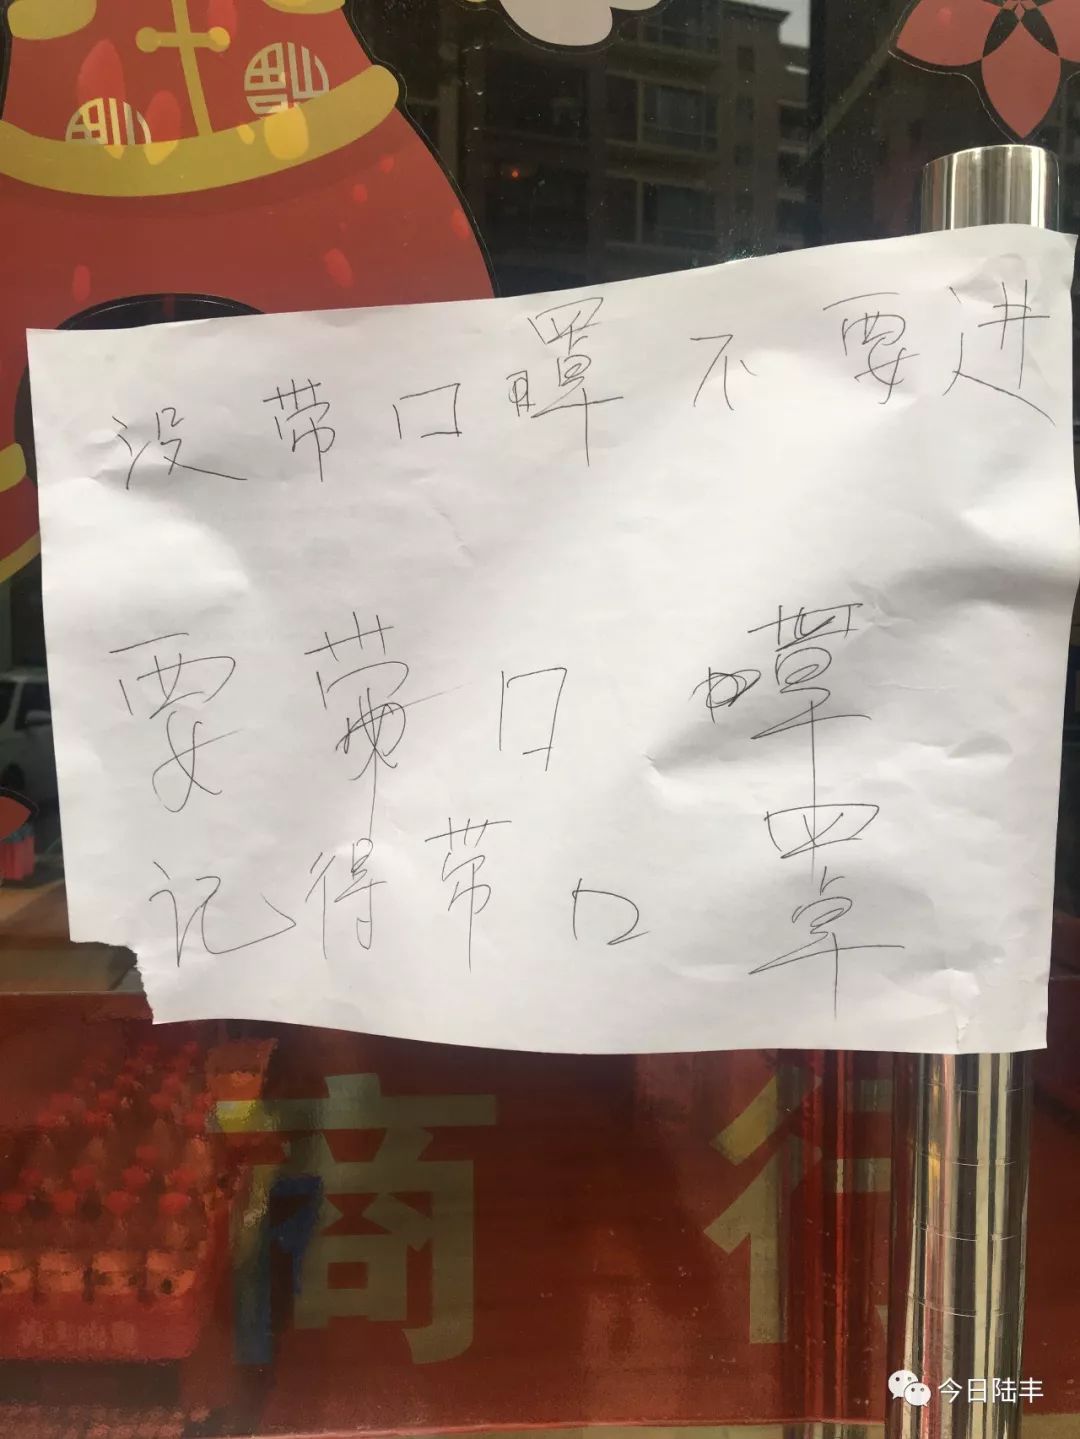 没带口罩不要进
要带口罩
记得带口罩
商行
今日陆丰